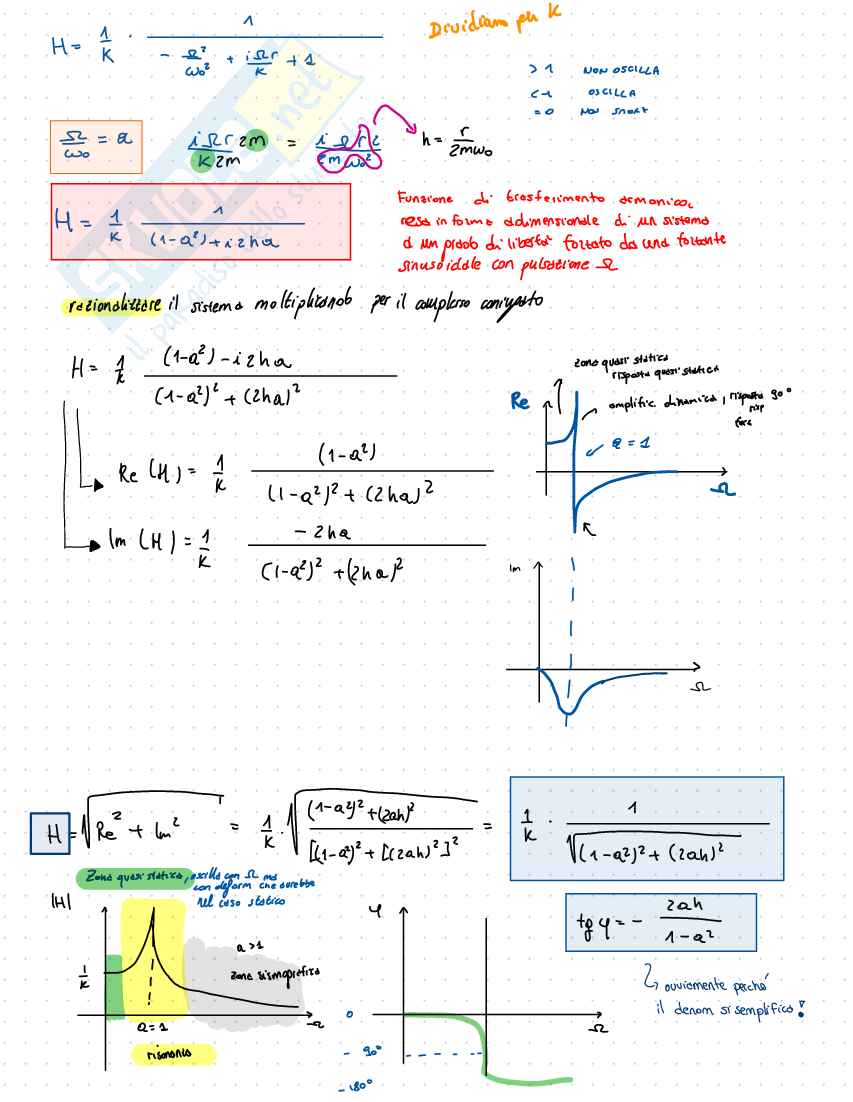 Dividiamo per K
H = 1/K · 1 / (- Ω²/ω₀² + iΩr/K + 1)
> 1 NON OSCILLA
< 1 OSCILLA
= 0 NON SMORZ
Ω/ω₀ = a
iΩr 2m / K 2m = iΩr2 / 2mω₀²
h = r / 2mω₀
H = 1/K 1 / ((1-a²) + i2ha)
Funzione di trasferimento armonica,
resa in forma adimensionale di un sistema
a un grado di libertà forzato da una forzante
sinusoidale con pulsazione Ω
razionalizzare il sistema moltiplicando per il complesso coniugato
H = 1/K ((1-a²) - i2ha) / ((1-a²)² + (2ha)²)
Re (H) = 1/K (1-a²) / ((1-a²)² + (2ha)²)
Im (H) = 1/K - 2ha / ((1-a²)² + (2ha)²)
zona quasi statica
risposta quasi statica
Re
amplific. dinamica, risposta 90°
risp
a = 1
Ω
Im
Ω
H = √(Re² + Im²) = 1/K · √(((1-a²)² + (2ah)²) / [(1-a²)² + [(2ah)²]²) = 1/K · 1 / √((1-a²)² + (2ah)²)
Zona quasi statica, oscilla con Ω ma
con deform che avrebbe
nel caso statico
|H|
1/K
a > 1
zona sismografica
a = 1
Ω
risonanza
φ
0
- 90°
- 180°
Ω
tg φ = - 2ah / (1-a²)
ovviamente perché
il denom si semplifica!
SKUOLA.net
il paradiso dello studente